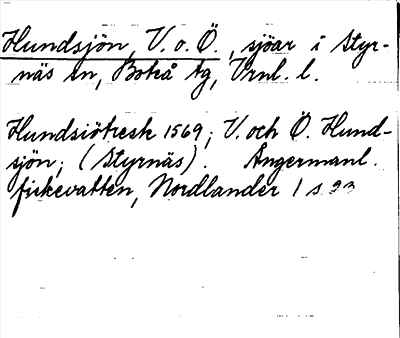 Hundsjön, V. o. Ö., sjöar i Styr-
näs sn, Boteå tg, Vrnl. l.
Hundsiötresk 1569; V. och Ö. Hund-
sjön; (Styrnäs). Ångermanl.
fiskevatten, Nordlander 1 s. 23